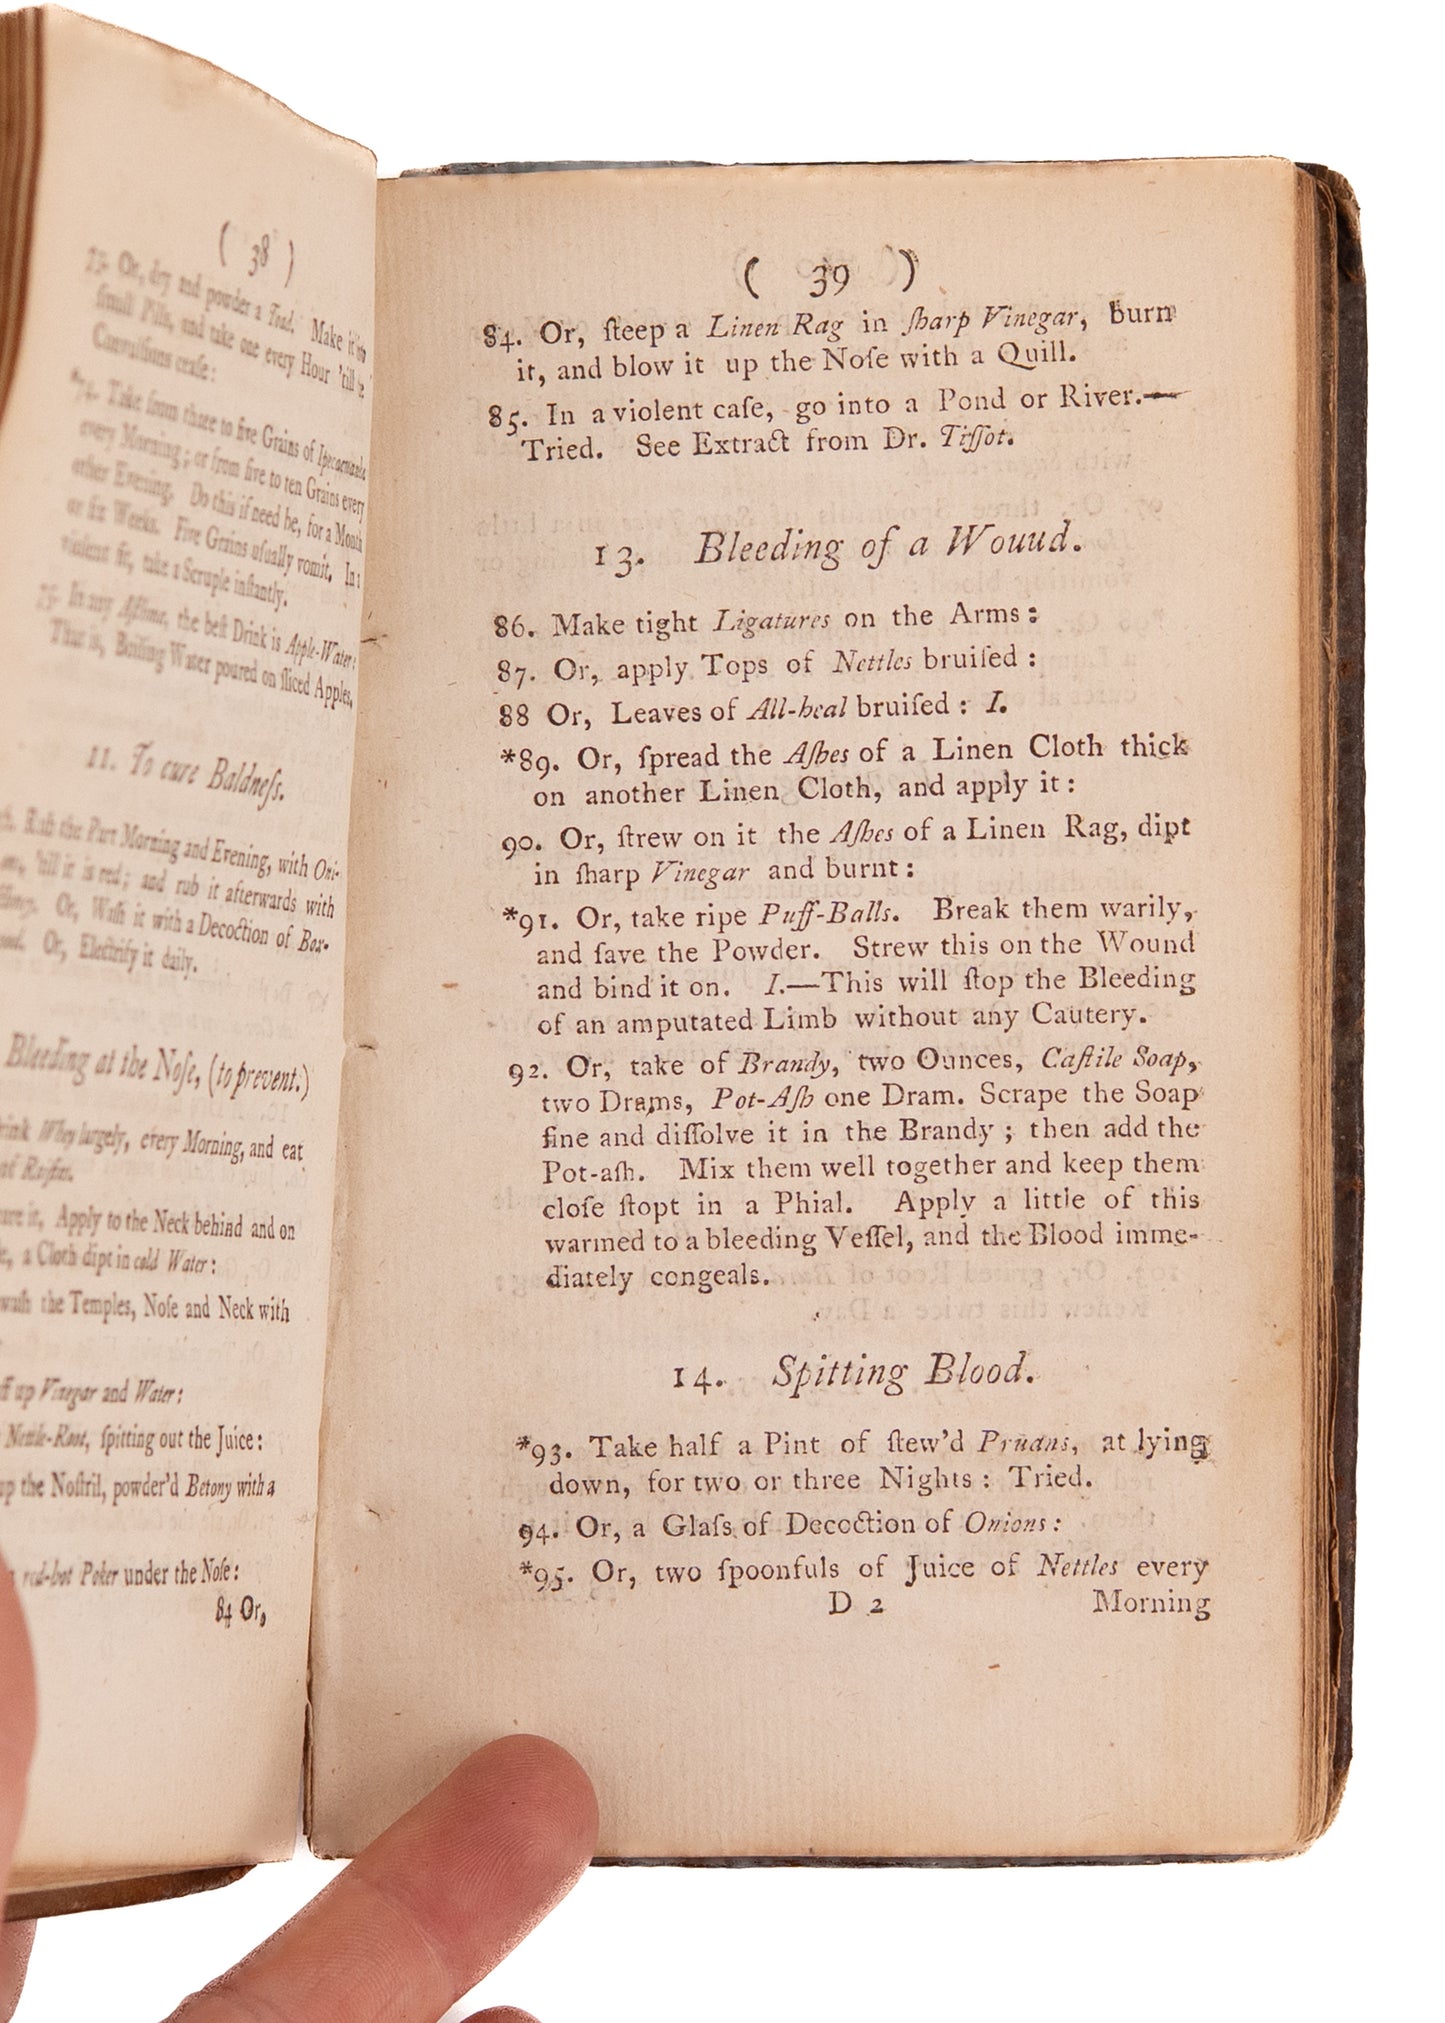 ( 38 )
73. Or, dry and powder a Toad. Make it into
ſmall Pills, and take one every Hour 'till the
Convulſions ceaſe:
*74. Take from three to five Grains of Ipecacuanha
every Morning; or from five to ten Grains every
other Evening. Do this if need be, for a Month
or ſix Weeks. Five Grains uſually vomit. In a
violent fit, take a Scruple inſtantly.
75. In any Aſthma, the beſt Drink is Apple-Water:
That is, Boiling Water poured on ſliced Apples.
11. To cure Baldneſs.
Rub the Part Morning and Evening, with Oni-
'till it is red; and rub it afterwards with
Honey. Or, Waſh it with a Decoction of Box-
Or, Electrify it daily.
Bleeding at the Noſe, (to prevent.)
Whey largely, every Morning, and eat
of Raiſins.
it, Apply to the Neck behind and on
a Cloth dipt in cold Water:
waſh the Temples, Noſe and Neck with
up Vinegar and Water:
Nettle-Root, ſpitting out the Juice:
up the Noſtril, powder'd Betony with a
red-hot Poker under the Noſe:
84 Or,
( 39 )
84. Or, ſteep a Linen Rag in ſharp Vinegar, burn
it, and blow it up the Noſe with a Quill.
85. In a violent caſe, go into a Pond or River.—
Tried. See Extract from Dr. Tiſſot.
13. Bleeding of a Wouud.
86. Make tight Ligatures on the Arms:
87. Or, apply Tops of Nettles bruiſed:
88 Or, Leaves of All-heal bruiſed: I.
*89. Or, ſpread the Aſhes of a Linen Cloth thick
on another Linen Cloth, and apply it:
90. Or, ſtrew on it the Aſhes of a Linen Rag, dipt
in ſharp Vinegar and burnt:
*91. Or, take ripe Puff-Balls. Break them warily,
and ſave the Powder. Strew this on the Wound
and bind it on. I.—This will ſtop the Bleeding
of an amputated Limb without any Cautery.
92. Or, take of Brandy, two Ounces, Caſtile Soap,
two Drams, Pot-Aſh one Dram. Scrape the Soap
fine and diſſolve it in the Brandy; then add the
Pot-aſh. Mix them well together and keep them
cloſe ſtopt in a Phial. Apply a little of this
warmed to a bleeding Veſſel, and the Blood imme-
diately congeals.
14. Spitting Blood.
*93. Take half a Pint of ſtew'd Pruans, at lying
down, for two or three Nights: Tried.
94. Or, a Glaſs of Decoction of Onions:
*95. Or, two ſpoonfuls of Juice of Nettles every
D 2 Morning